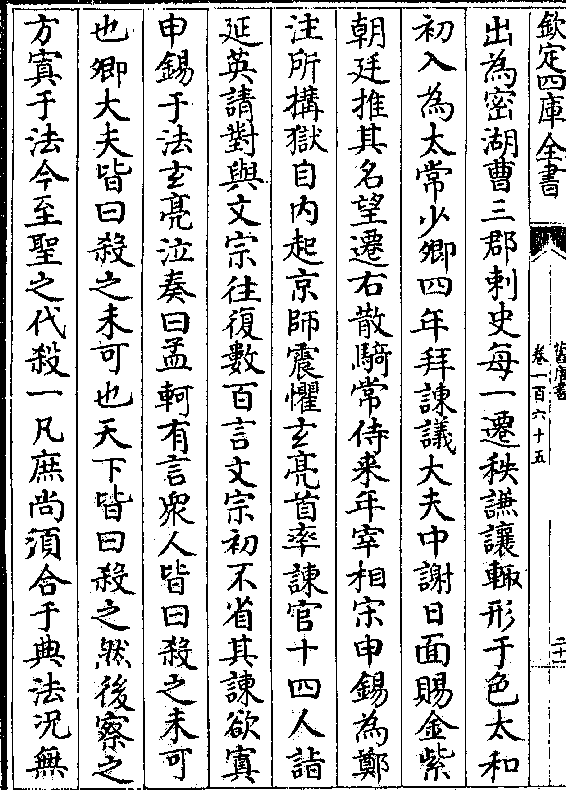 欽定四庫全書
舊唐書
卷一百六十五
出為密湖曹三郡刺史每一遷秩謙讓輙形于色太和
初入為太常少卿四年拜諫議大夫中謝日面賜金紫
朝廷推其名望遷右散騎常侍來年宰相宋申錫為鄭
注所搆獄自内起京師震懼玄亮首率諫官十四人詣
延英請對與文宗往復數百言文宗初不省其諫欲寘
申錫于法玄亮泣奏曰孟軻有言衆人皆曰殺之未可
也卿大夫皆曰殺之未可也天下皆曰殺之然後察之
方寘于法今至聖之代殺一凡庶尚須合于典法况無